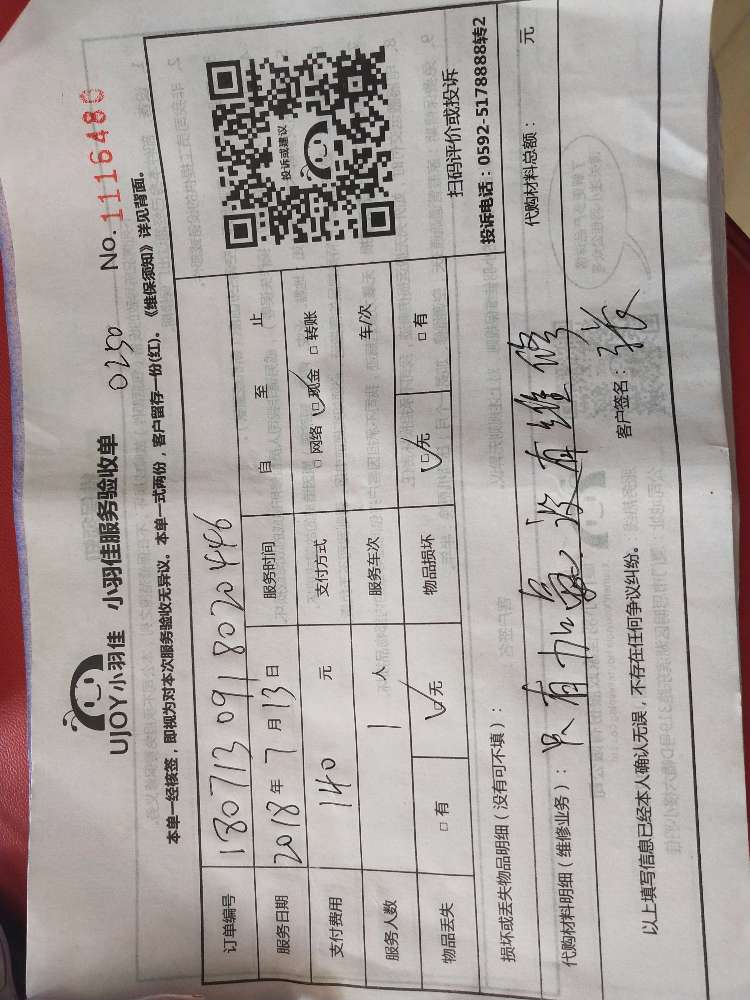 UJOY小羽佳 小羽佳服务验收单 0250 No.1116486
本单一经核签，即视为对本次服务验收无异议。本单一式两份，客户留存一份(红)。《维保须知》详见背面。
订单编号 1807130918020446
服务日期 2018年7月13日 服务时间 自 至 止
支付费用 140 元 支付方式 □网络 ☑现金 □转账
服务人数 1 人 服务车次 车/次
物品丢失 □有 ☑无 物品损坏 ☑无 □有
投诉或建议
扫码评价或投诉
投诉电话：0592-5178888转2
损坏或丢失物品明细（没有可不填）：
代购材料明细（维修业务）： 只有加氟.没有维修 代购材料总额： 元
以上填写信息已经本人确认无误，不存在任何争议纠纷。 客户签名：